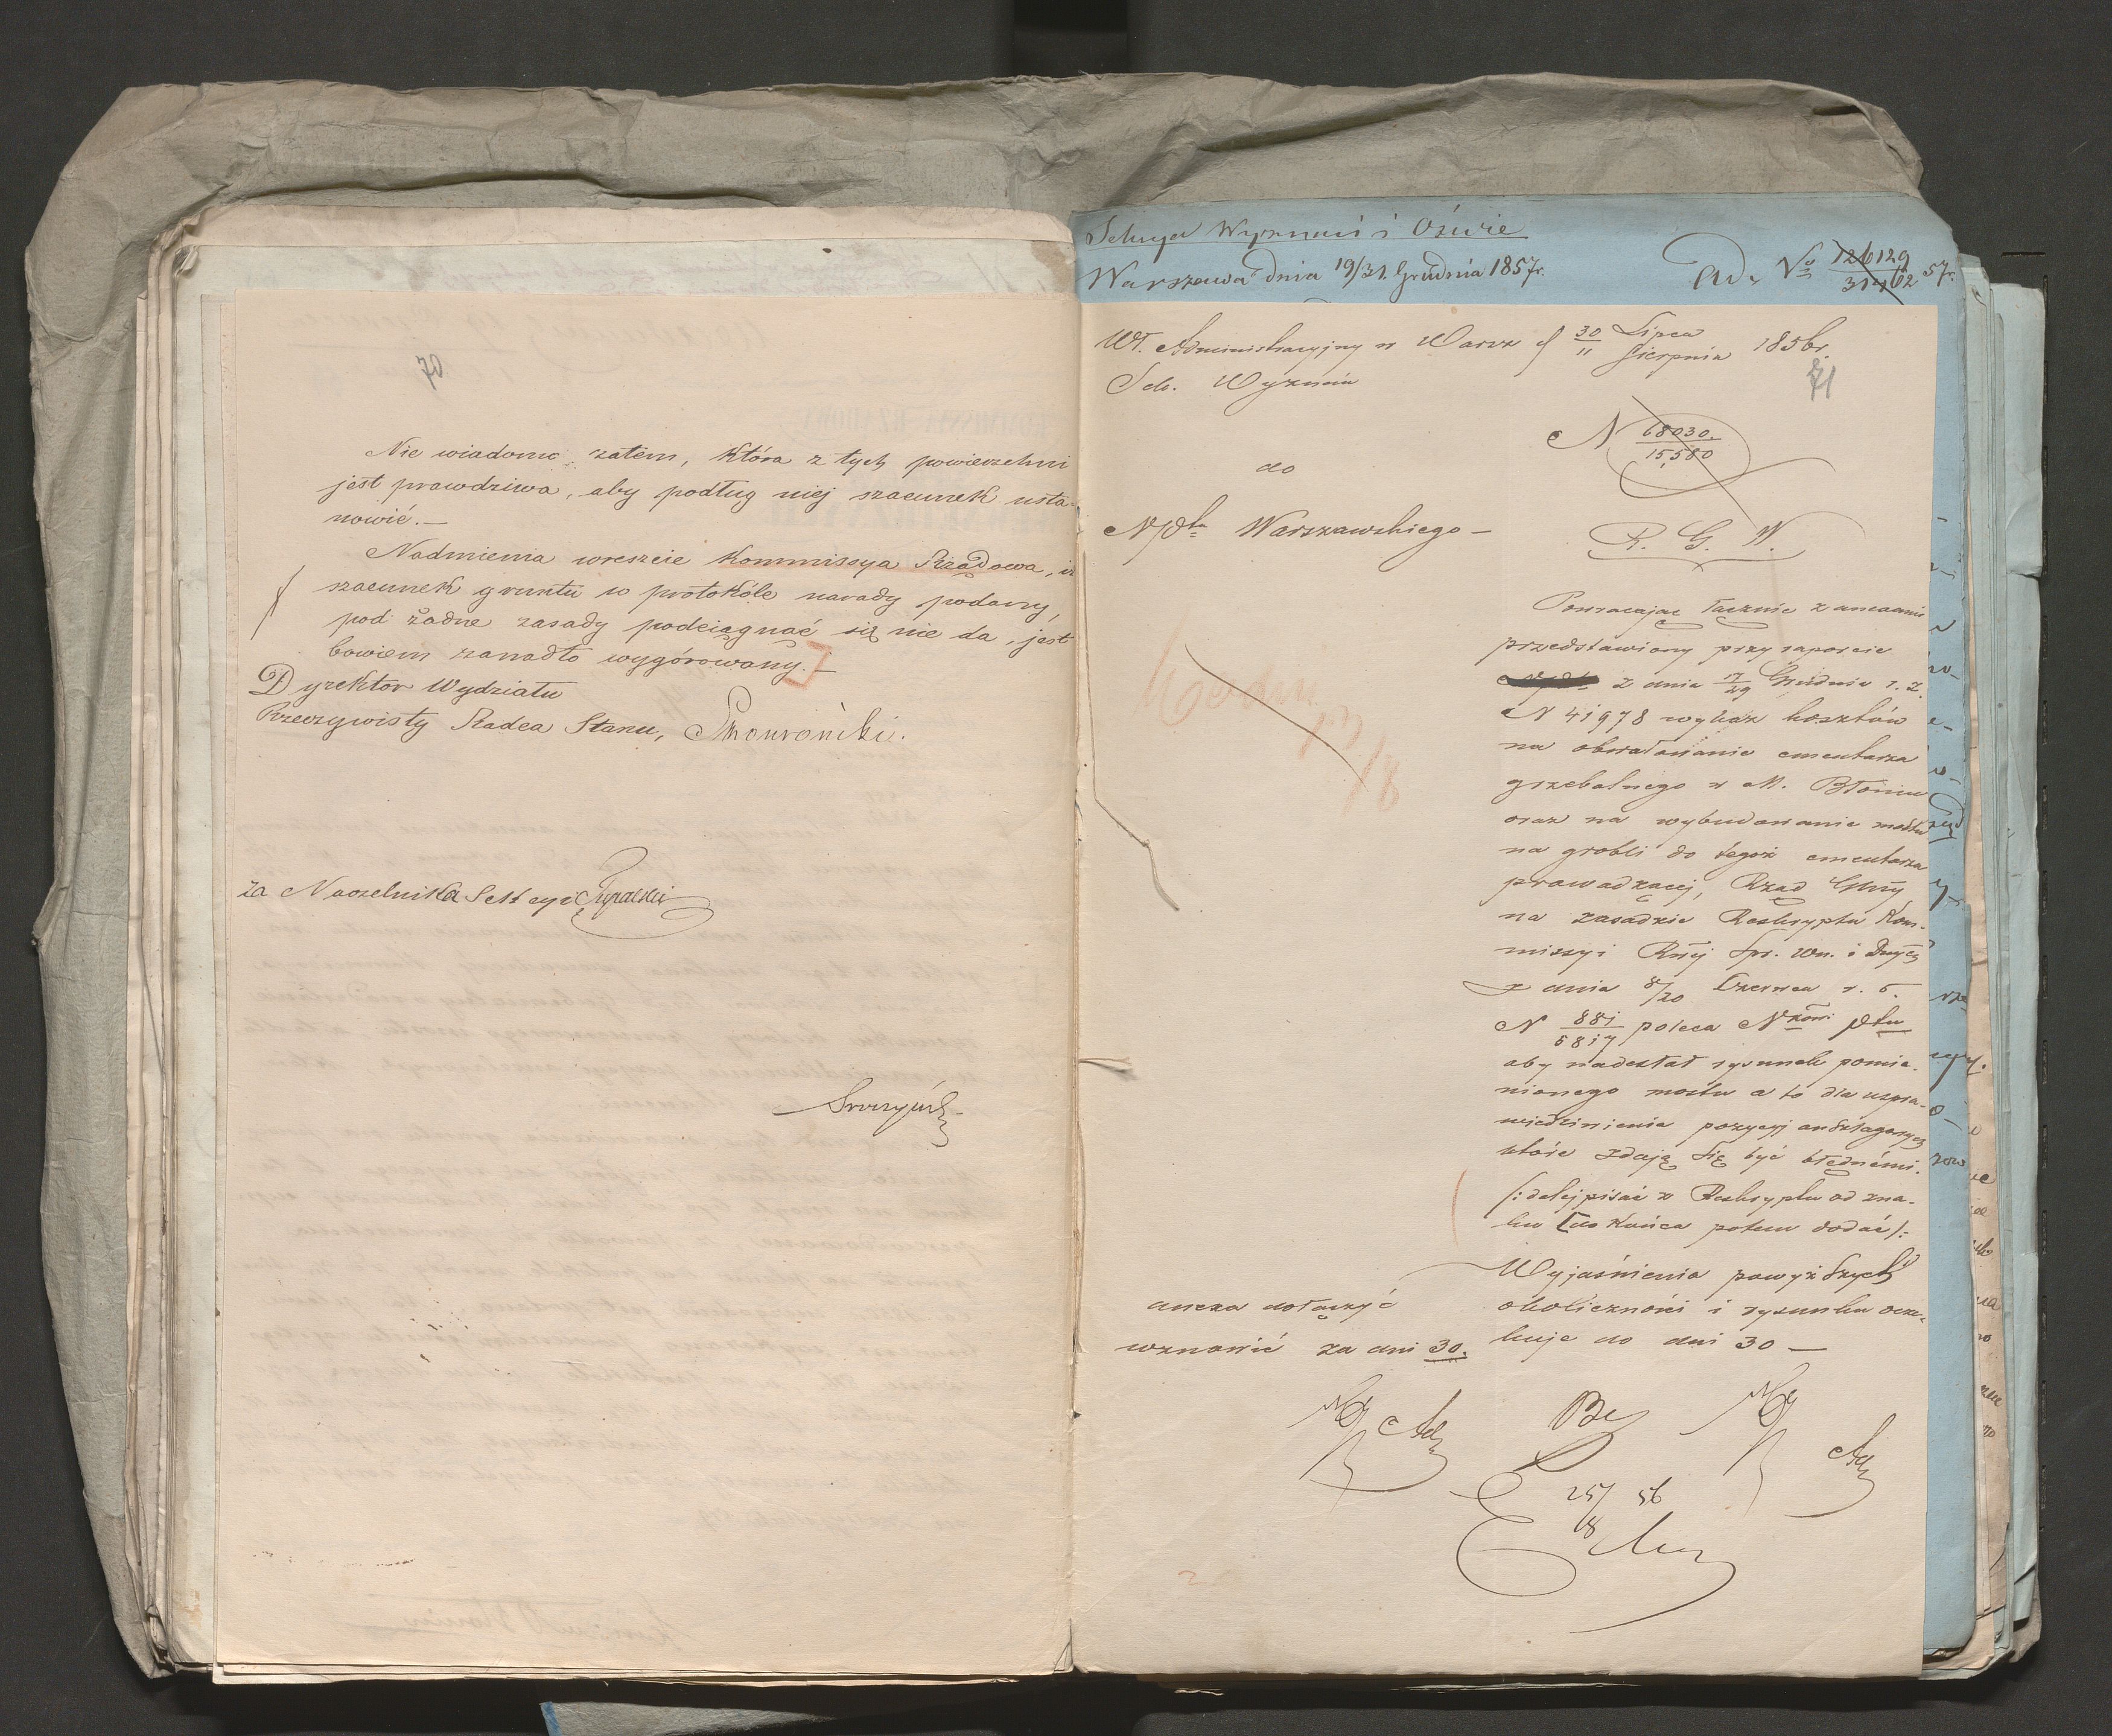 70
Nie wiadomo zatem, która z tych powierzchni
jest prawdziwa, aby podług niej szacunek usta-
nowić.—
Nadmienia wreszcie Kommissya Rządowa, iż
szacunek gruntu w protokóle narady podany,
pod żadne zasady podciągnąć się nie da, jest
bowiem zanadto wygórowany.—
Dyrektor Wydziału
Rzeczywisty Radca Stanu,
za Naczelnika Sekcyi
Sekcya Wyznań i Oświe
Warszawa dnia 19/31. Grudnia 1857r.
Ad No 126129/31462 57r.
Wł. Administracyjny w Warsz d 30/11 Lipca/Sierpnia 1856r.
Sek. Wyznań
71
N 68030./15,580
do
Npłu Warszawskiego —
R. G. W.
Powracając łącznie z anexami
przedstawiony przy raporcie
z dnia 17/29 Grudnia r. z.
N 41978 wykaz kosztów
na obwałowanie cmentarza
grzebalnego w M. Błoniu
oraz na wybudowanie mostu
na grobli do tegoż cmentarza
prowadzącej, Rząd Gbny
na zasadzie Reskryptu Kom-
missyi Rnej Spr. Wn. i Duych
z dnia 8/20 Czerwca r. b.
N 881/5817 poleca Nkowi Ptu
aby nadesłał rysunek pomie-
nionego mostu a to dla uspra-
wiedliwienia pozycyj anszlagowych
które zdają się być błędnémi.
/: dalej pisać z Reskryptu od zna-
ku [ do końca potem dodać /:
Wyjaśnienia powyższych
okoliczności i rysunku ocze-
kuje do dni 30 —
anexa dołączyć
wznowić za dni 30.
25/8 56